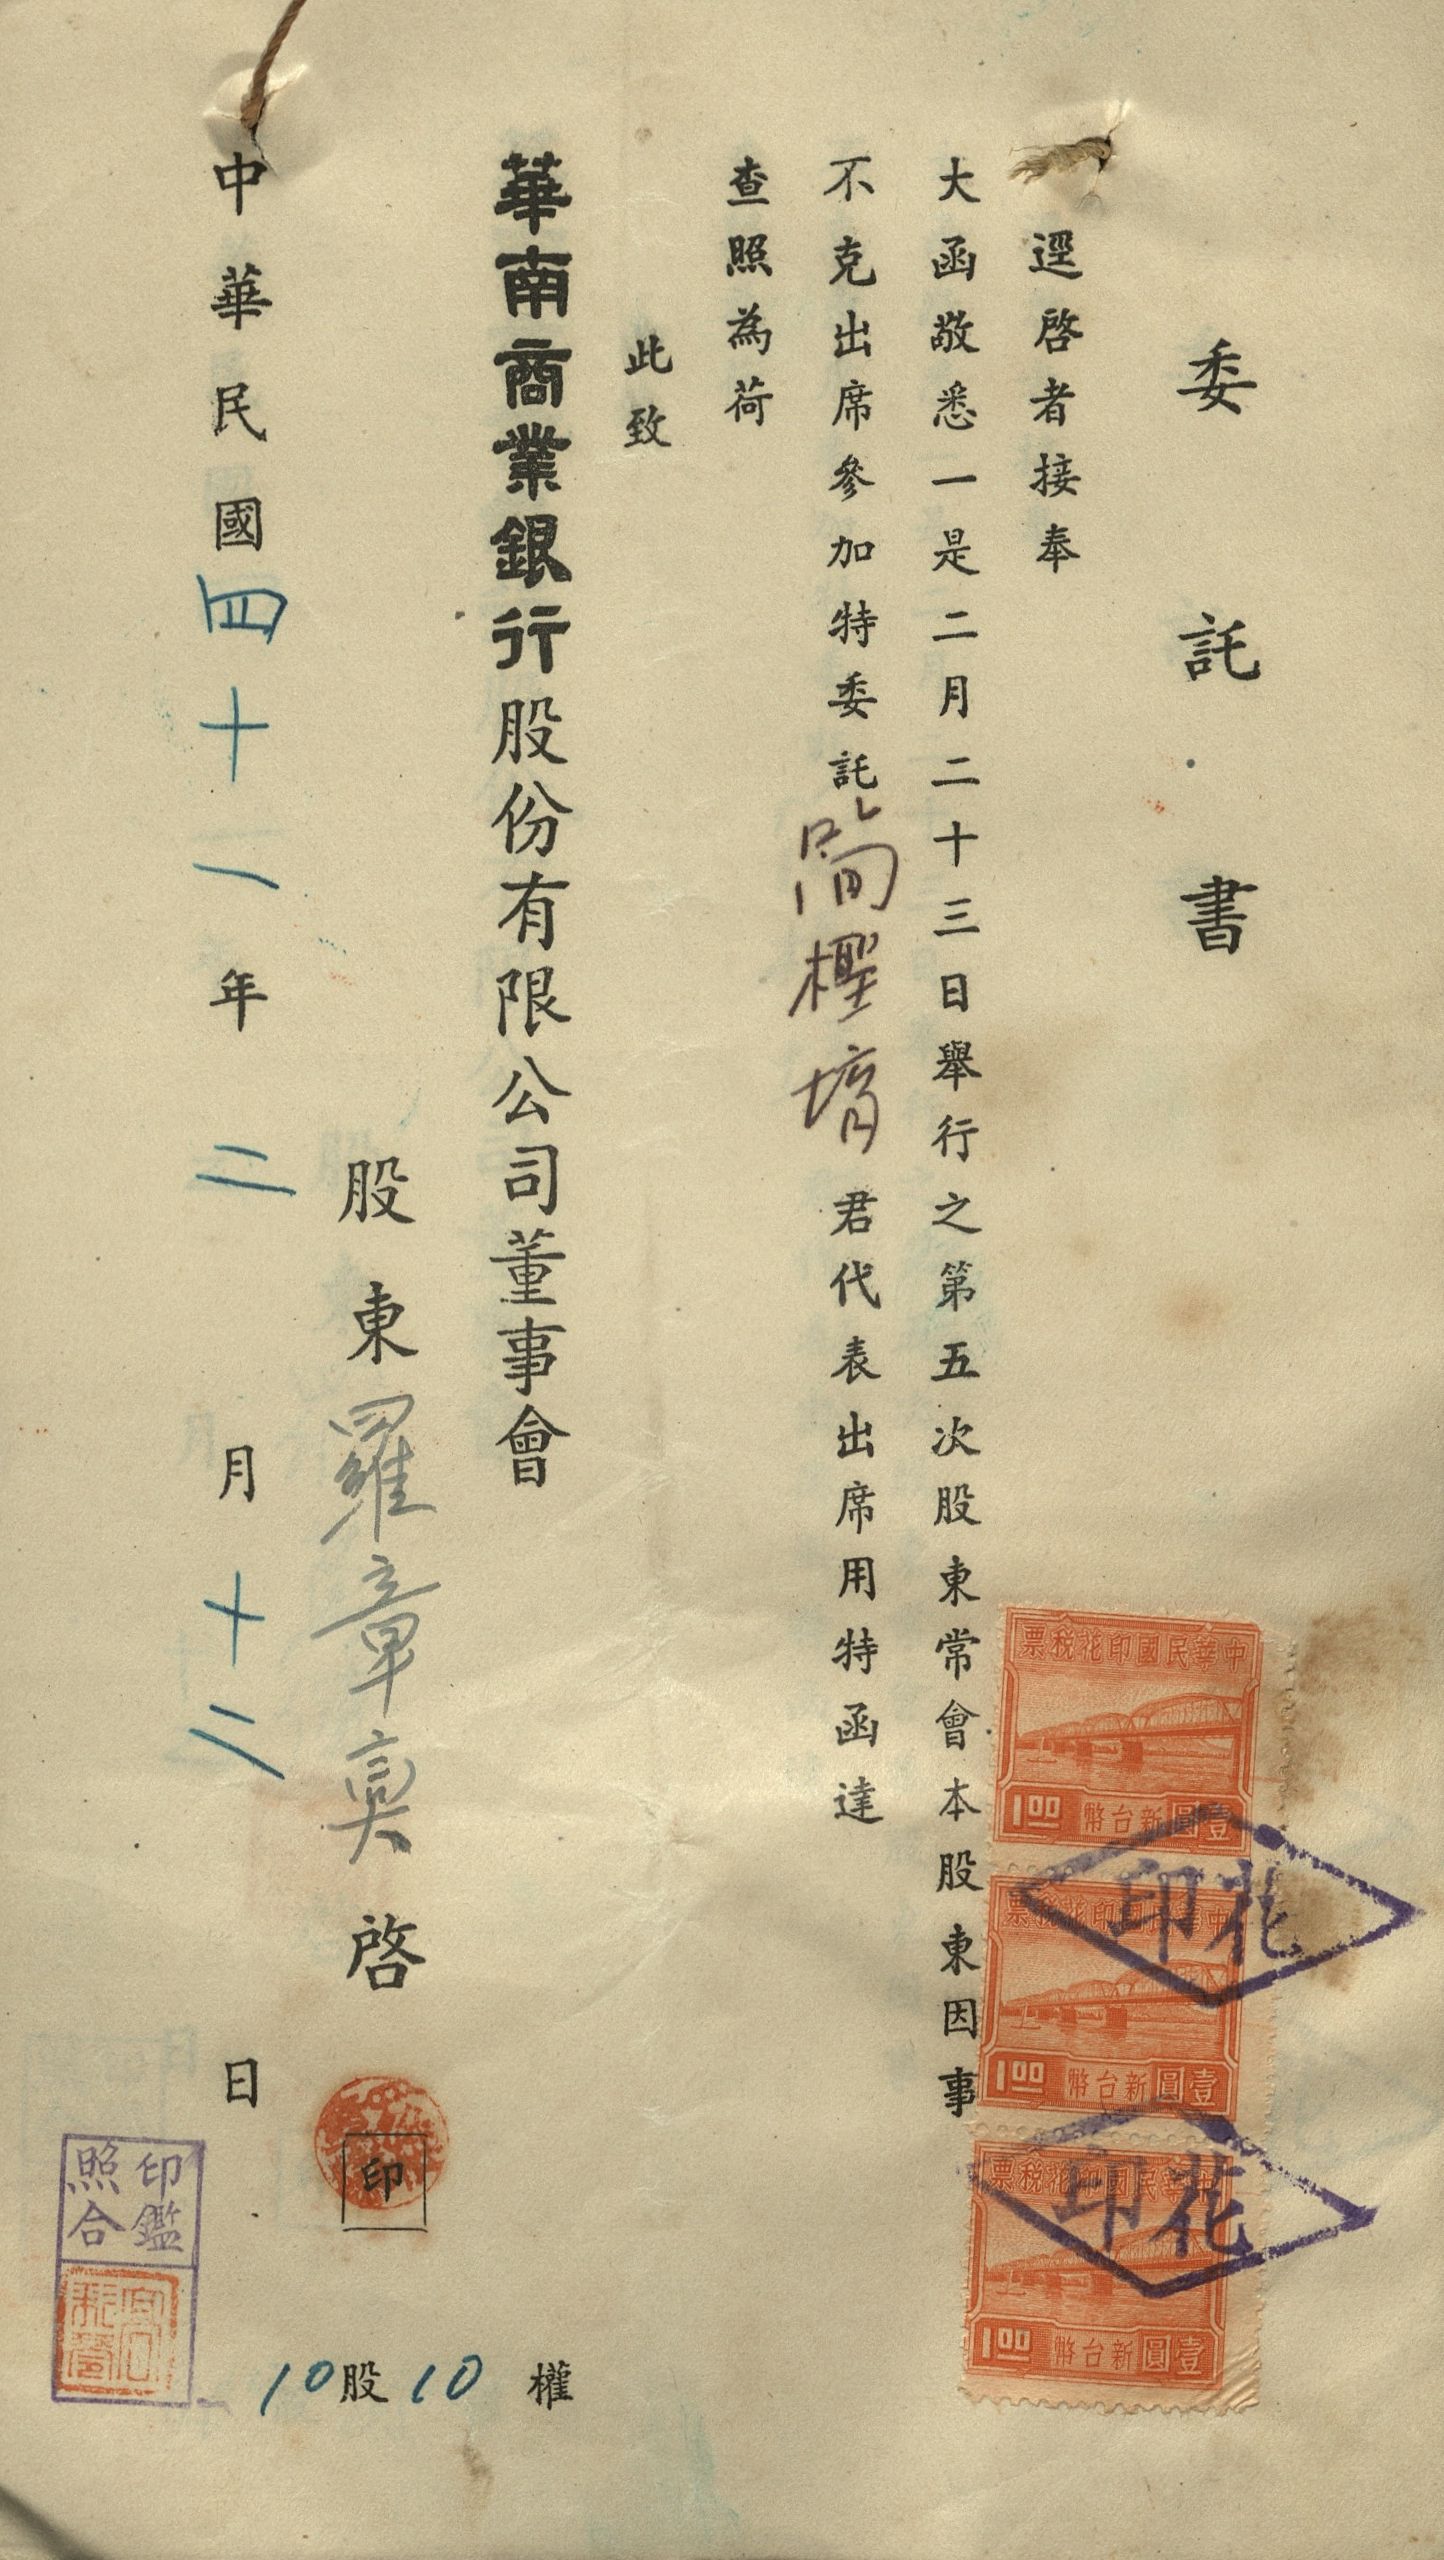 委託書
逕啓者接奉
大函敬悉一是二月二十三日舉行之第五次股東常會本股東因事
不克出席參加特委託簡檉堉君代表出席用特函達
查照為荷
此致
華南商業銀行股份有限公司董事會
股東羅章奭啓
印
10股10權
中華民國四十一年二月十二日
印鑑
照合
中華民國印花稅票
1.00 壹圓新台幣
中華民國印花稅票
1.00 壹圓新台幣
中華民國印花稅票
1.00 壹圓新台幣
印花
印花